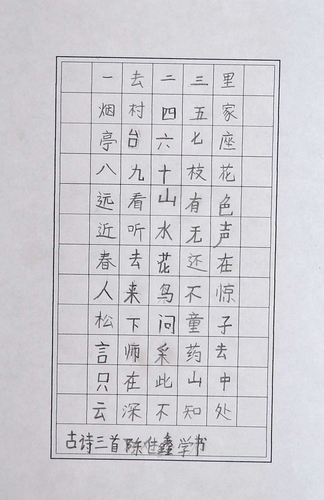 一去二三里
烟村四五家
亭台六七座
八九十枝花
远看山有色
近听水无声
春去花还在
人来鸟不惊
松下问童子
言师采药去
只在此山中
云深不知处
古诗三首陈佳鑫学书